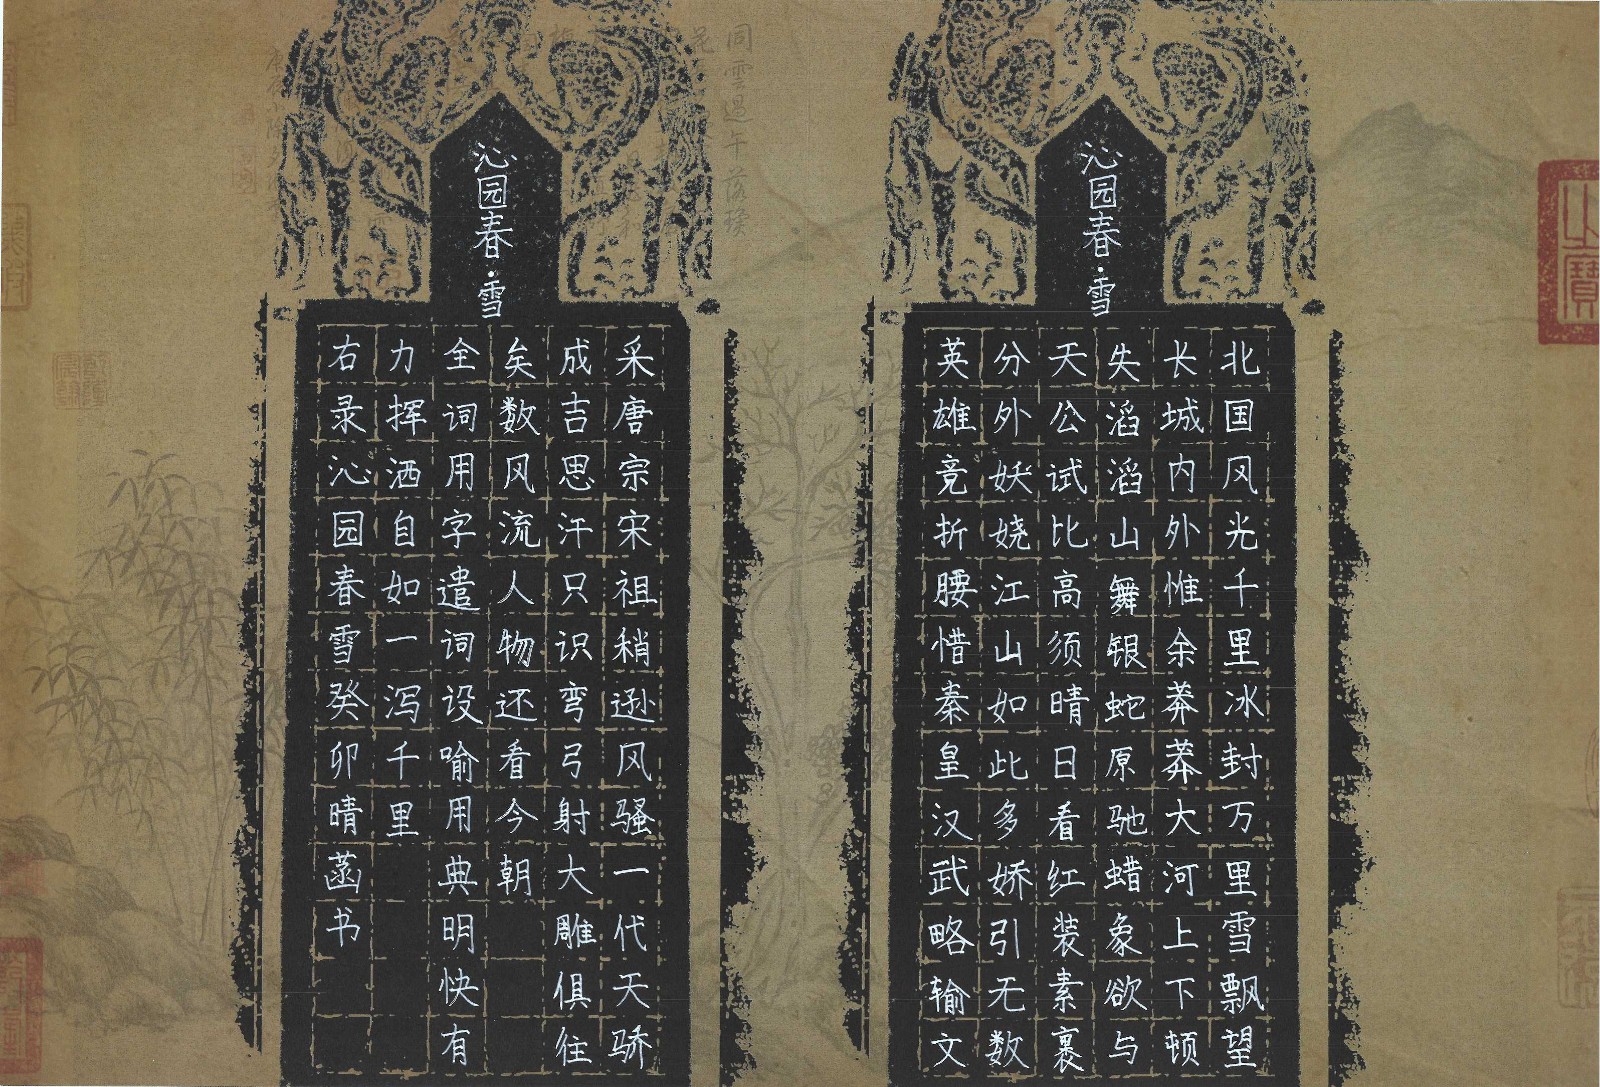 沁园春·雪
北国风光千里冰封万里雪飘望
长城内外惟余莽莽大河上下顿
失滔滔山舞银蛇原驰蜡象欲与
天公试比高须晴日看红装素裹
分外妖娆江山如此多娇引无数
英雄竞折腰惜秦皇汉武略输文
沁园春·雪
采唐宗宋祖稍逊风骚一代天骄
成吉思汗只识弯弓射大雕俱往
矣数风流人物还看今朝
全词用字遣词设喻用典明快有
力挥洒自如一泻千里
右录沁园春雪癸卯晴菡书
之寶